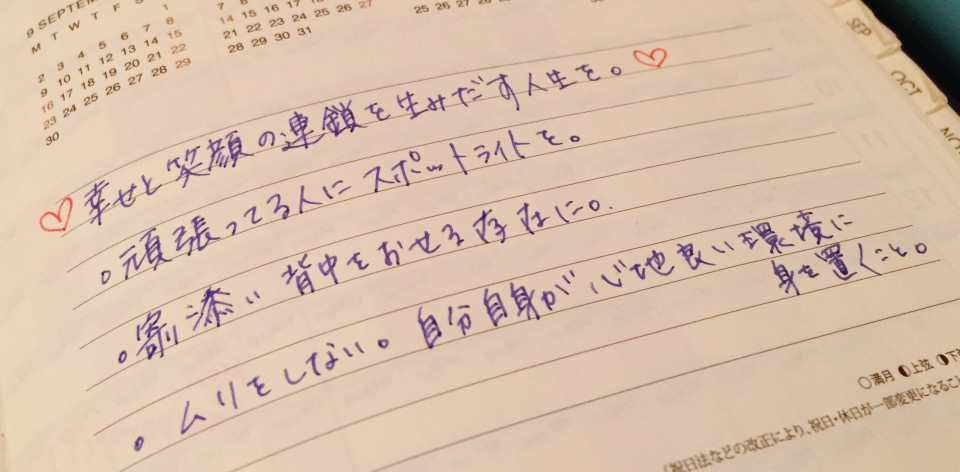 9 SEPTEM
M T W T F S
1
2 3 4 5 6 7 8
9 10 11 12 13 14 15
16 17 18 19 20 21 22
23 24 25 26 27 28 29
30
7 8
14 15 16 17 18 19 20
21 22 23 24 25 26 27
28 29 30 31
25 26 27 28 29 30
SEP
OCT
♡幸せと笑顔の連鎖を生みだす人生を。♡
。頑張ってる人にスポットライトを。
。寄り添い背中をおせる存在に。
。ムリをしない。自分自身が心地良い環境に
身を置くこと。
○満月 ◐上弦 ◑下弦
(祝日法などの改正により、祝日・休日が一部変更になること